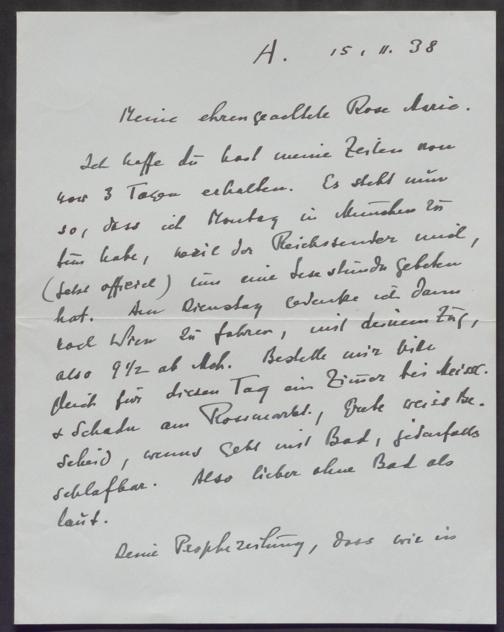 A. 15. II. 38
Meine ehrengeachtete Rose Marie.
Ich hoffe du hast meine Zeilen von
vor 3 Tagen erhalten. Es steht nun
so, dass ich Montag in München zu
tun habe, weil der Reichssender mich,
(jetzt officiel) um eine Lesestunde gebeten
hat. Am Dienstag gedenke ich dann
nach Wien zu fahren, mit deinem Zug,
also 9½ ab Mch. Bestelle mir bitte
gleich für diesen Tag ein Zimer bei Meissl
& Schadn am Rossmarkt, weiss Be-
scheid, wenns geht mit Bad, jedenfalls
schlafbar. Also lieber ohne Bad als
laut.
Deine , dass wir in